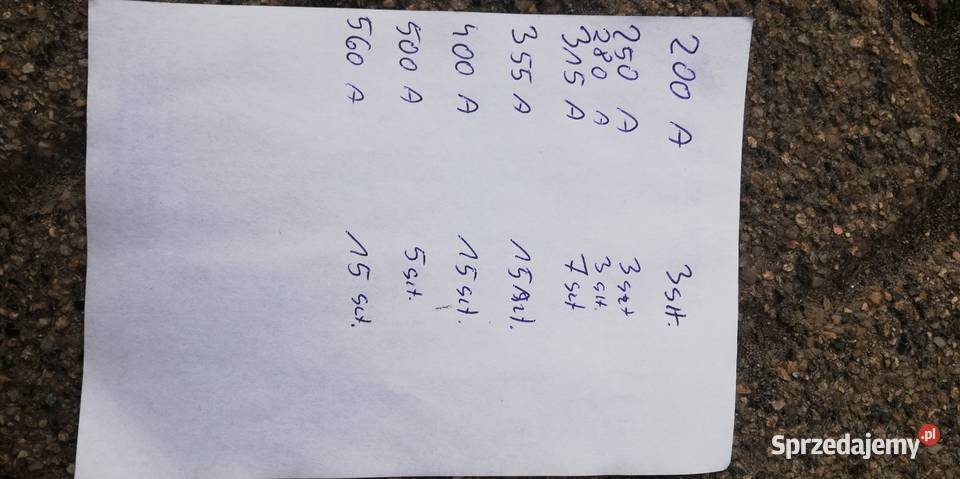 200 A 3 szt.
250 A 3 szt
280 A 3 szt.
315 A 7 szt
355 A 15 szt.
400 A 15 szt.
500 A 5 szt.
560 A 15 szt.
Sprzedajemy.pl